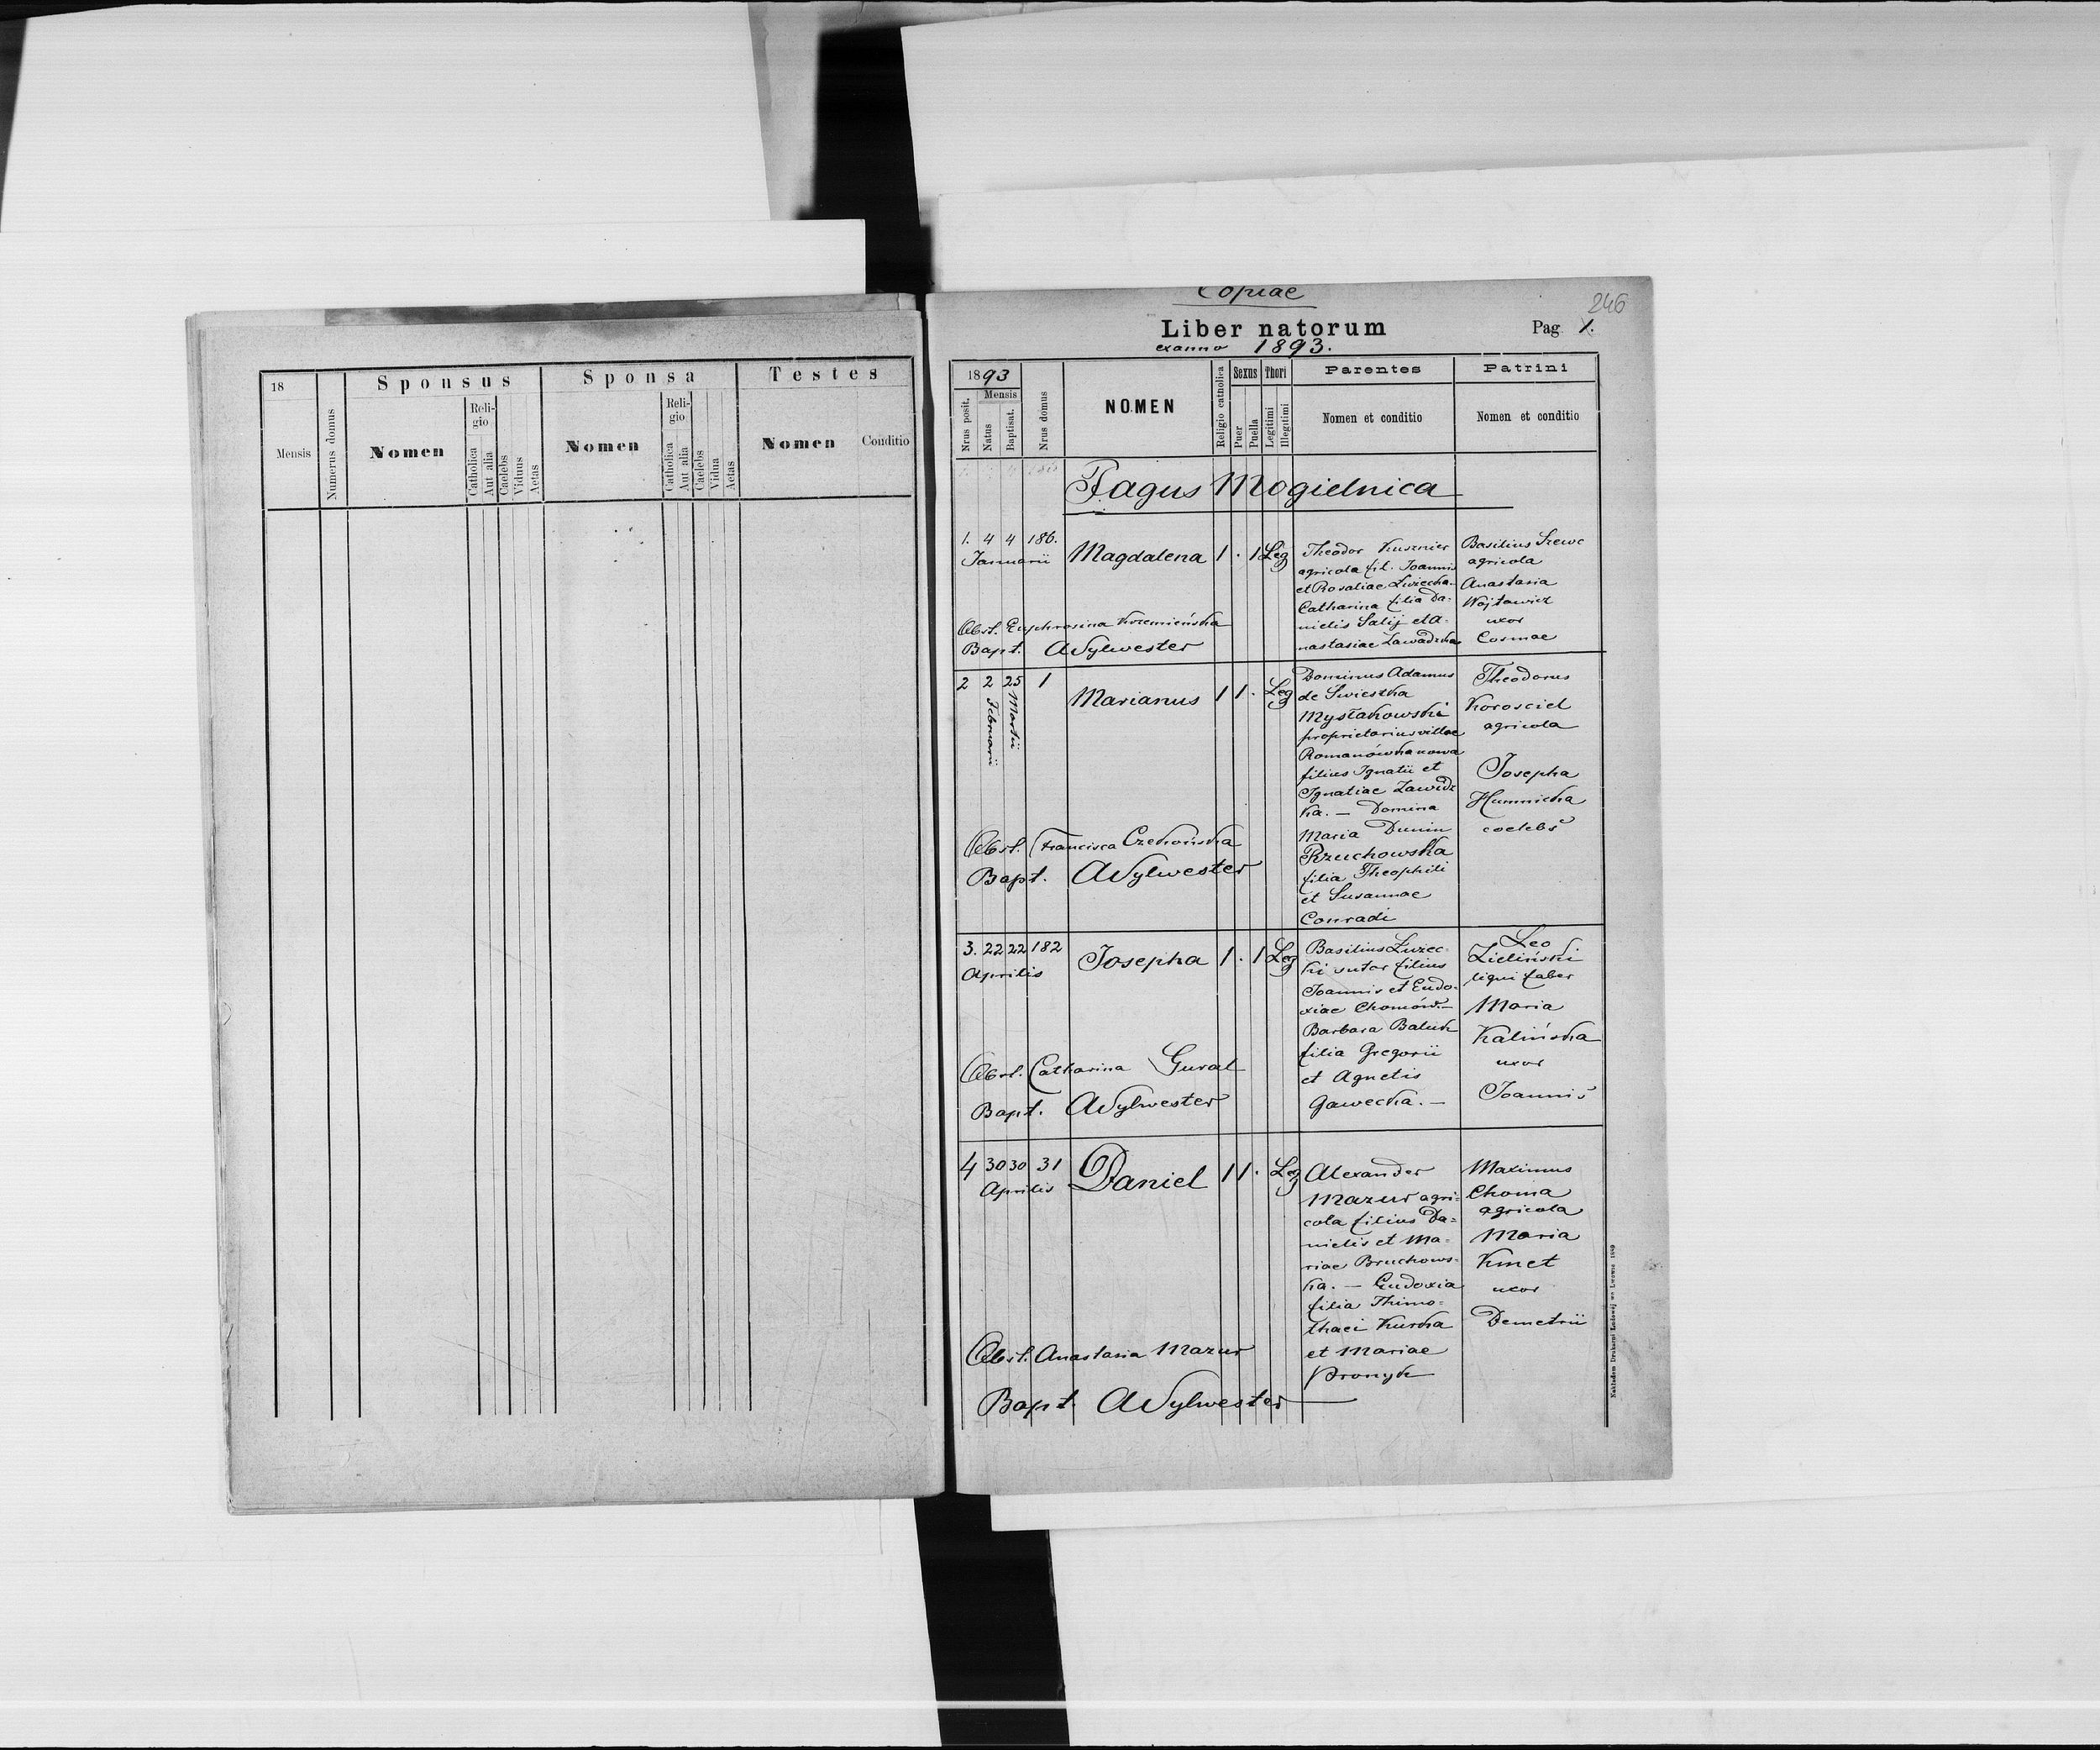 18
Mensis
Numerus domus
Sponsus
Nomen
Religio
Catholica
Aut alia
Caelebs
Viduus
Aetas
Sponsa
Nomen
Religio
Catholica
Aut alia
Caelebs
Vidua
Aetas
Testes
Nomen
Conditio
246
Copiae
Liber natorum
Pag. 1.
ex anno 1893.
1893
Nrus posit.
Mensis
Natus
Baptisat.
Nrus domus
NOMEN
Religio catholica
Sexus
Puer
Puella
Thori
Legitimi
Illegitimi
Parentes
Nomen et conditio
Patrini
Nomen et conditio
Pagus Mogielnica
1. 4 4 186.
Januarii
Magdalena 1 . 1 Leg
Theodor Kusznier
agricola fil. Joannis
et Rosaliae Zwiecka.
Catharina filia Da-
nielis Salij et A-
nastasiae Zawadzka
Basilius Szewc
agricola
Anastasia
Wojtowicz
uxor
Cosmae
Obst. Euphrosina Krzemieńska
Bapt. ASylwester
2 2 25 1
Februarii
Martii
Marianus 1 1 . Leg
Dominus Adamus
de Swiestka
Mysłakowski
proprietarius villae
Romanówka nowa
filius Ignatii et
Ignatiae Zawidz
ka. — Domina
Maria Dunin
Rzuchowska
filia Theophili
et Susannae
Conradi
Theodorus
Korosciel
agricola
Josepha
Humnicka
coelebs
Obst. Francisca Czekońska
Bapt. ASylwester
3. 22 22 182
Aprilis
Josepha 1 . 1 Leg
Basilius Zwiec-
ki sutor filius
Joannis et Eudo-
xiae Chomów. —
Barbara Baluk
filia Gregorii
et Agnetis
Gawecka. —
Leo
Zieliński
ligni faber
Maria
Kalińska
uxor
Joannis
Obst. Catharina Gural
Bapt. ASylwester
4 30 30 31
Aprilis
Daniel 1 1 . Leg
Alexander
Mazur agri=
cola filius Da=
nielis et Ma=
riae Bruchows=
ka. — Eudoxia
filia Thimo=
thaei Kurka
et Mariae
Pronyk
Maximus
Choma
agricola
Maria
Kmet
uxor
Demetrii
Obst. Anastasia Mazur
Bapt ASylwester
Nakładem Drukarni Ludowej we Lwowie 1889